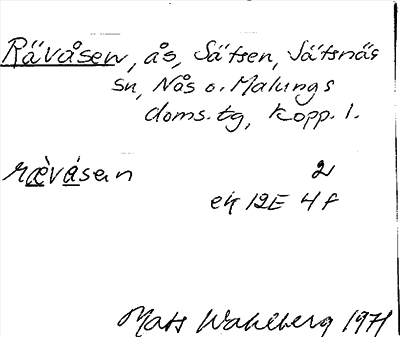 Rävåsen, ås, Sätsen, Jätsnäs
sn, Nås o. Malungs
doms. tg, Kopp. l.
ræ̀vásen 2
ek 12E 4f
Mats Wahlberg 1971